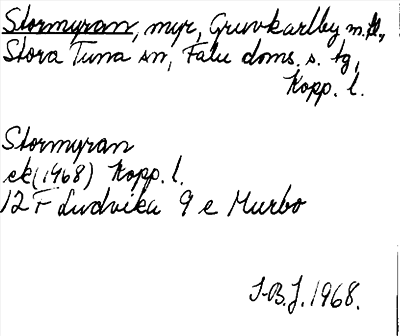 Stormyran, myr, Gruvkarlby m.fl.,
Stora Tuna sn, Falu doms. s. tg,
Kopp. l.
Stormyran
ek (1968) Kopp. l.
12 F Ludvika 9 e Murbo
I-B.J. 1968.